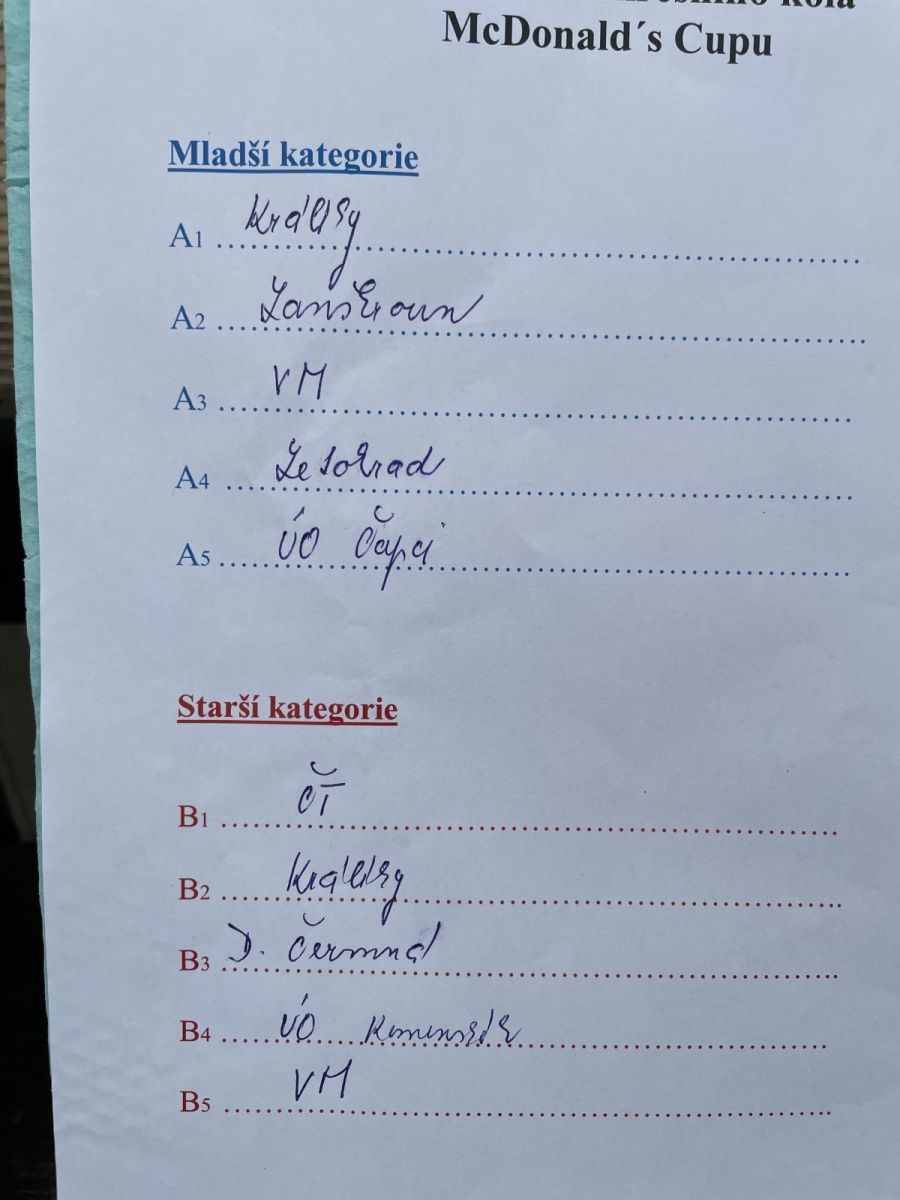 kola
McDonald´s Cupu
Mladší kategorie
A1 Králíky
A2 Lanškroun
A3 VM
A4 Letohrad
A5 ÚO Čapci
Starší kategorie
B1 ČT
B2 Králíky
B3 D. Čermná
B4 ÚO Komenské
B5 VM